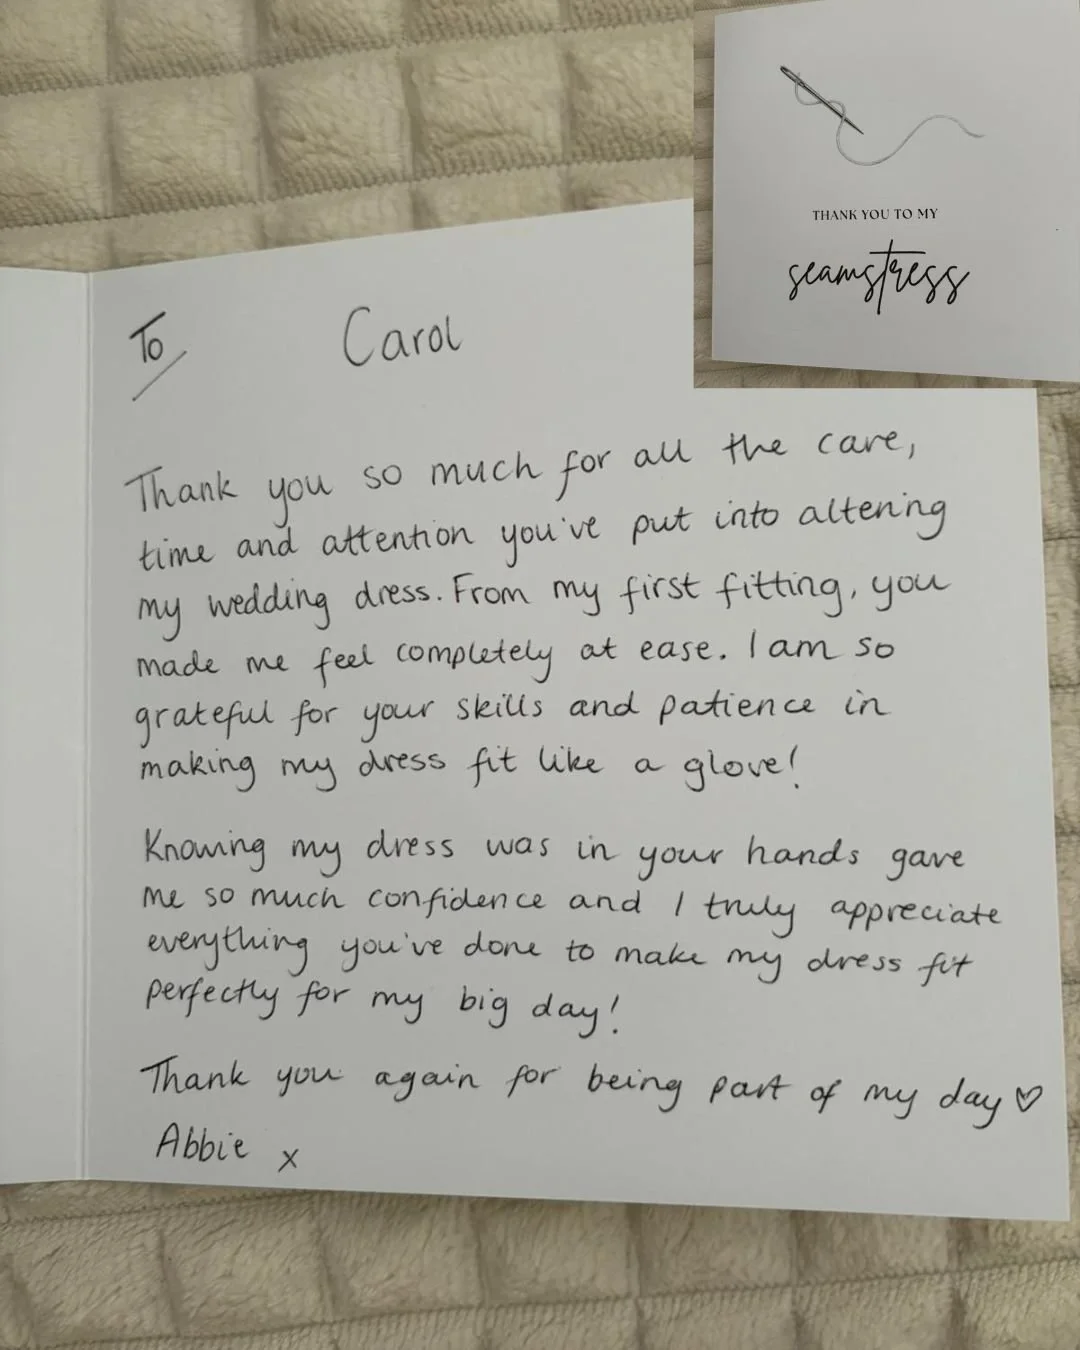 THANK YOU TO MY
seamstress
To Carol
Thank you so much for all the care,
time and attention you've put into altering
my wedding dress. From my first fitting, you
made me feel completely at ease. I am so
grateful for your skills and patience in
making my dress fit like a glove!
Knowing my dress was in your hands gave
me so much confidence and I truly appreciate
everything you've done to make my dress fit
perfectly for my big day!
Thank you again for being part of my day ♡
Abbie x